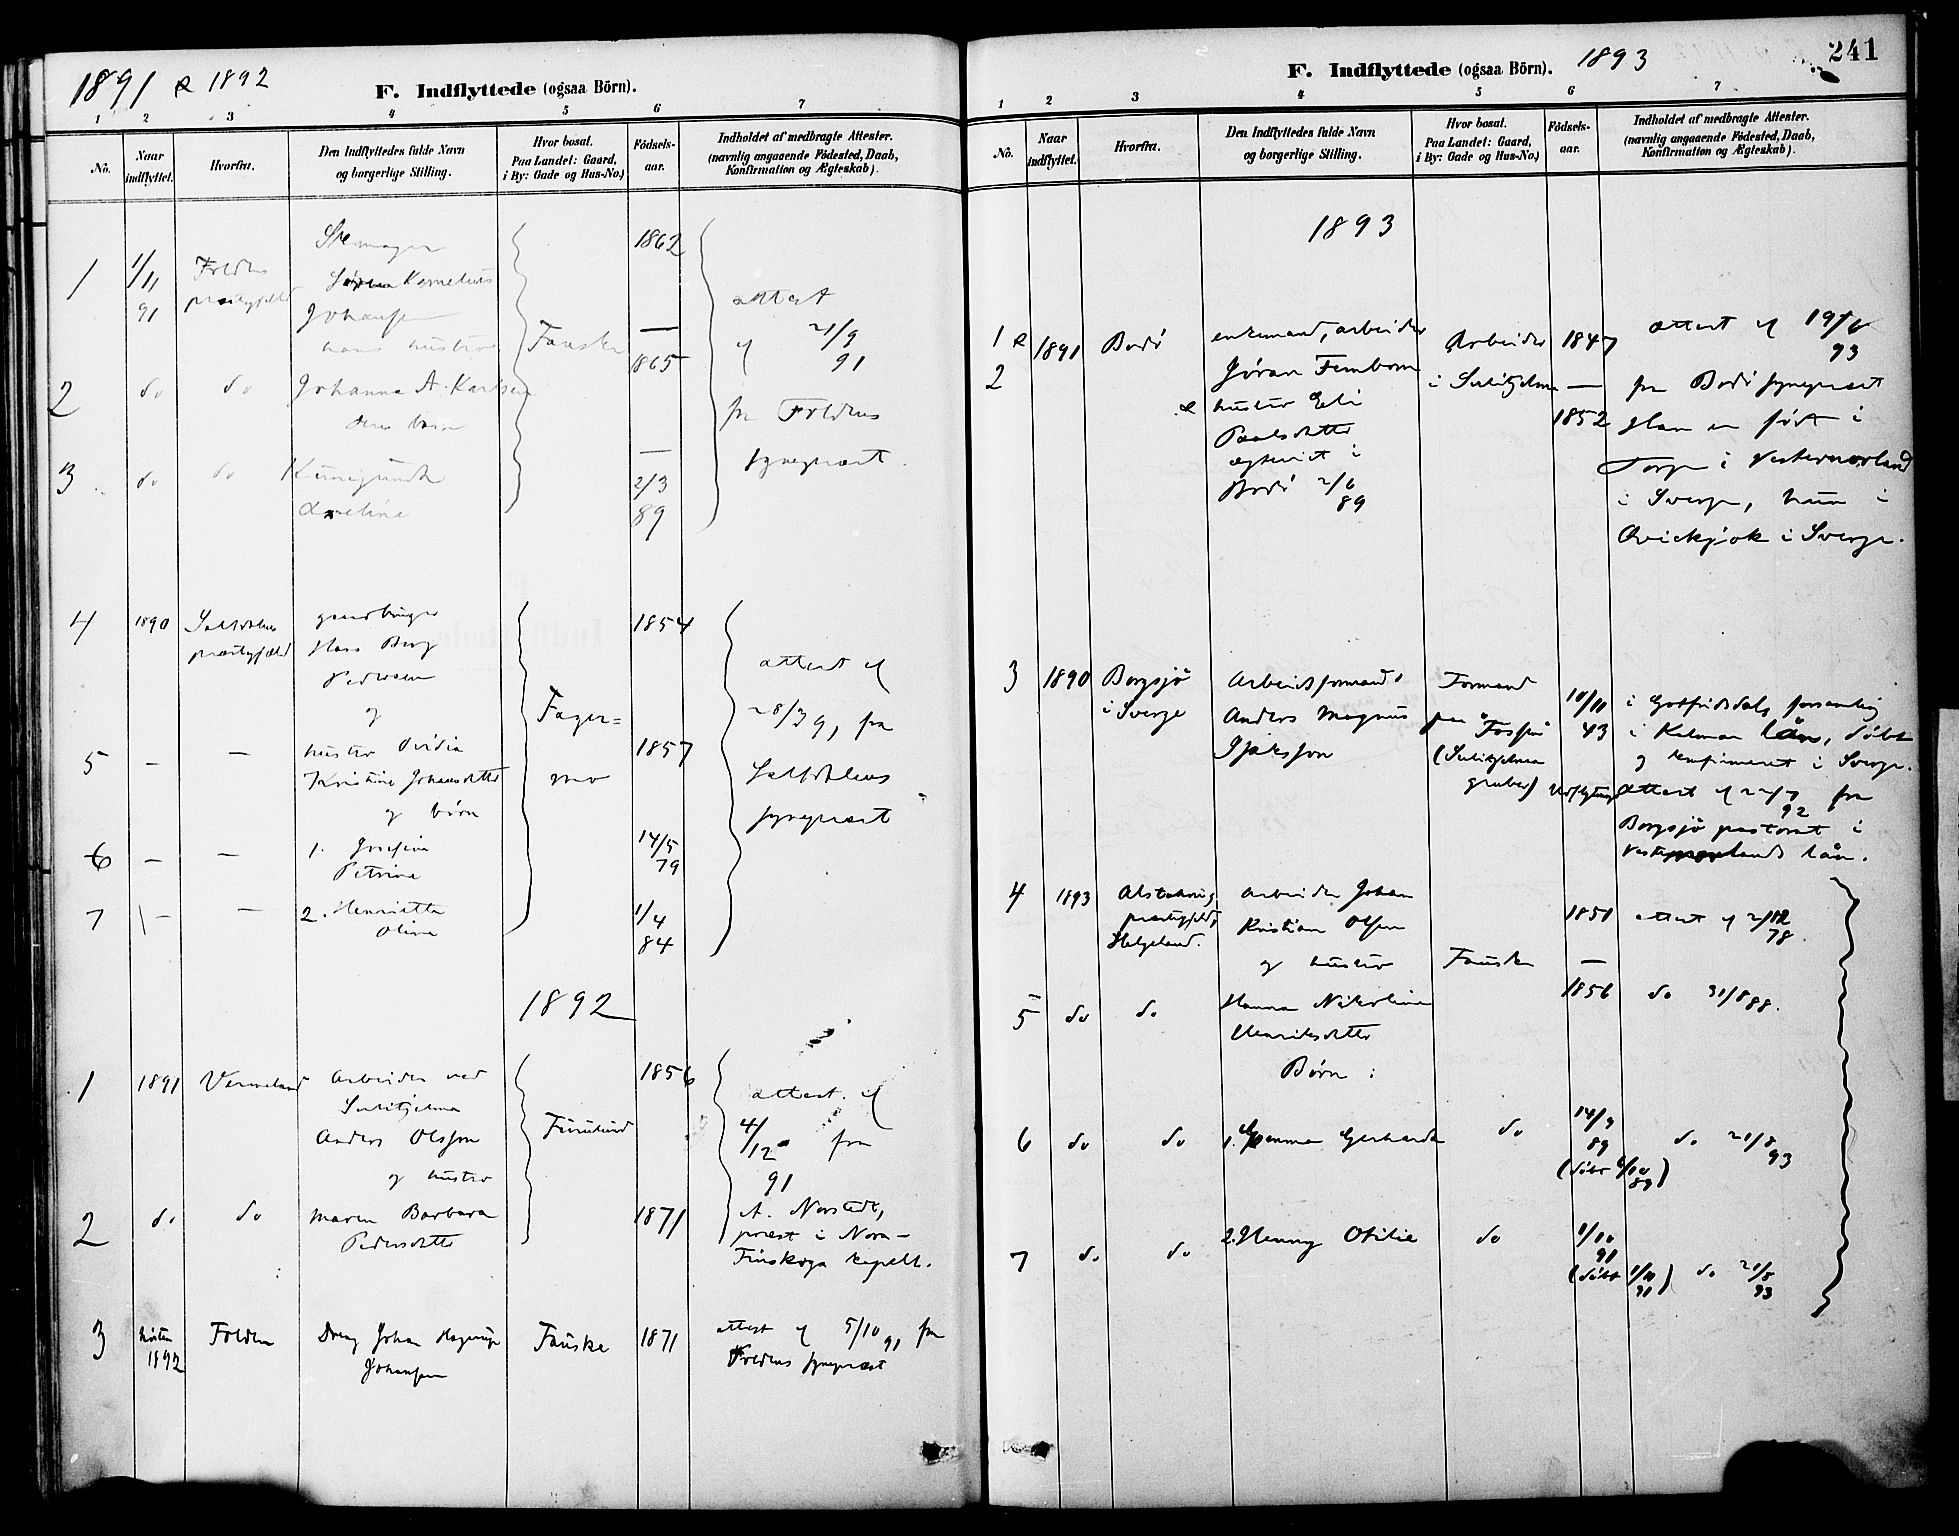 1891 & 1892
F. Indflyttede (ogsaa Börn).
1 2 3 4 5 6 7
No.
Naar indflyttet.
Hvorfra.
Den Indflyttedes fulde Navn og borgerlige Stilling.
Hvor bosat. Paa Landet: Gaard, i By: Gade og Hus-No.)
Födsels-aar.
Indholdet af medbragte Attester. (navnlig angaaende Födested, Daab, Konfirmation og Ægteskab).
1 1/11 91 Foldens præstegjeld
Kornelius
Johansen
hans hustru
Fauske
1862
attest
af 21/9 91
fra Foldens
sognepræst.
2 do do Johanna A. Karlsen
deres barn
1865
3 do do Kunigunda
2/3 89
4 1890 Saltdalens præstegjæld
gaardbruger
Hans Berg
Pedersen
og
Fager=
mo
1854
attest af
28/3 9, fra
Saltdalens
sognepræst
5 — — hustru Ovidia
Kristine Johansdatter
og børn
1857
6 — — 1. Josefine
Petrine
14/5 79
7 — — 2. Henriette
Oline
1/4 84
1892
1 1891 Vermeland Arbeider ved
Sulitjelma
Anders Olsson
og hustru
Furulund
1856
attest af
4/12 91 fra
A. Norstedt,
præst i Norra
Finskoga kapell.
2 do do Maren Barbara
Pedersdatter
1871
3 høsten 1892 Folden Dreng Johan Hagerup
Johansen
Fauske 1871 attest af 5/10 91 fra
Foldens sognepræst
F. Indflyttede (ogsaa Börn). 1893
241
1 2 3 4 5 6 7
No.
Naar indflyttet.
Hvorfra.
Den Indflyttedes fulde Navn og borgerlige Stilling.
Hvor bosat. Paa Landet: Gaard, i By: Gade og Hus-No.)
Födsels-aar.
Indholdet af medbragte Attester. (navnlig angaaende Födested, Daab, Konfirmation og Ægteskab).
1893
1 & 2 1891 Bodø enkemand, arbeider
Jøran Fembom
& hustru Eli
Paalsdatter
ægteviet i
Bodø 2/6 89
Arbeider
i Sulitjelma
1847
—
1852
attest af 19/6 93
fra Bodø sognepræst
Han er født i
Torp i Vesternorland
i Sverge, hun i
Qvickjok i Sverge.
3 1890 Borgsjö
i Sverge
Arbeidsformand
Anders Magnus
Isaksson
Formand
paa Fossen
(Sulitjelma
gruber)
10/11 43
i Gotfridsdals forsamling
i Kalmar län, døbt
og konfirmeret i Sverge.
Udflytnings attest af 22/7 92 fra
Borgsjö pastorat i
Vesternorlands län.
4 1893 Alstahoug
præstegjeld,
Helgeland.
Arbeider Johan
Kristian Olsen
og hustru
Fauske
1851
attest af 2/12 78
5 do do Hanna Nikoline
Henriksdatter
1856
do 31/8 88.
Børn:
6 do do 1. Gemma Gerharda do 14/9 89
(døbt 6/10 89)
do 21/8 93
7 do do 2. Henny Otilie do 1/10 91
(døbt 1/11 91)
do 21/8 93